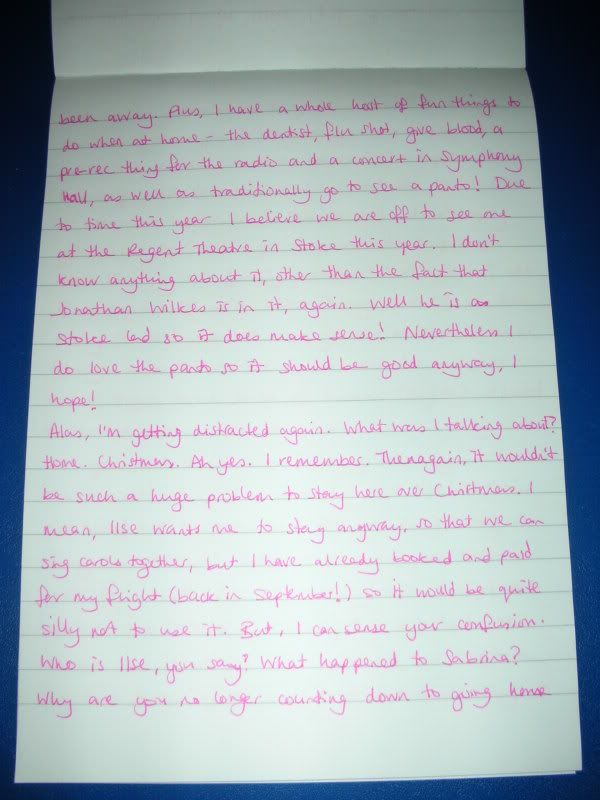 been away. Plus, I have a whole host of fun things to
do when at home - the dentist, flu shot, give blood, a
pre-rec thing for the radio and a concert in Symphony
Hall, as well as traditionally go to see a panto! Due
to time this year I believe we are off to see one
at the Regent Theatre in Stoke this year. I don't
know anything about it, other than the fact that
Jonathan Wilkes is in it, again. Well he is a
Stoke lad so it does make sense! Nevertheless I
do love the panto so it should be good anyway, I
hope!
Alas, I'm getting distracted again. What was I talking about?
Home. Christmas. Ah yes. I remember. Then again, it wouldn't
be such a huge problem to stay here over Christmas. I
mean, Ilse wants me to stay anyway, so that we can
sing carols together, but I have already booked and paid
for my flight (back in September!) so it would be quite
silly not to use it. But, I can sense your confusion.
Who is Ilse, you say? What happened to Sabrina?
Why are you no longer counting down to going home